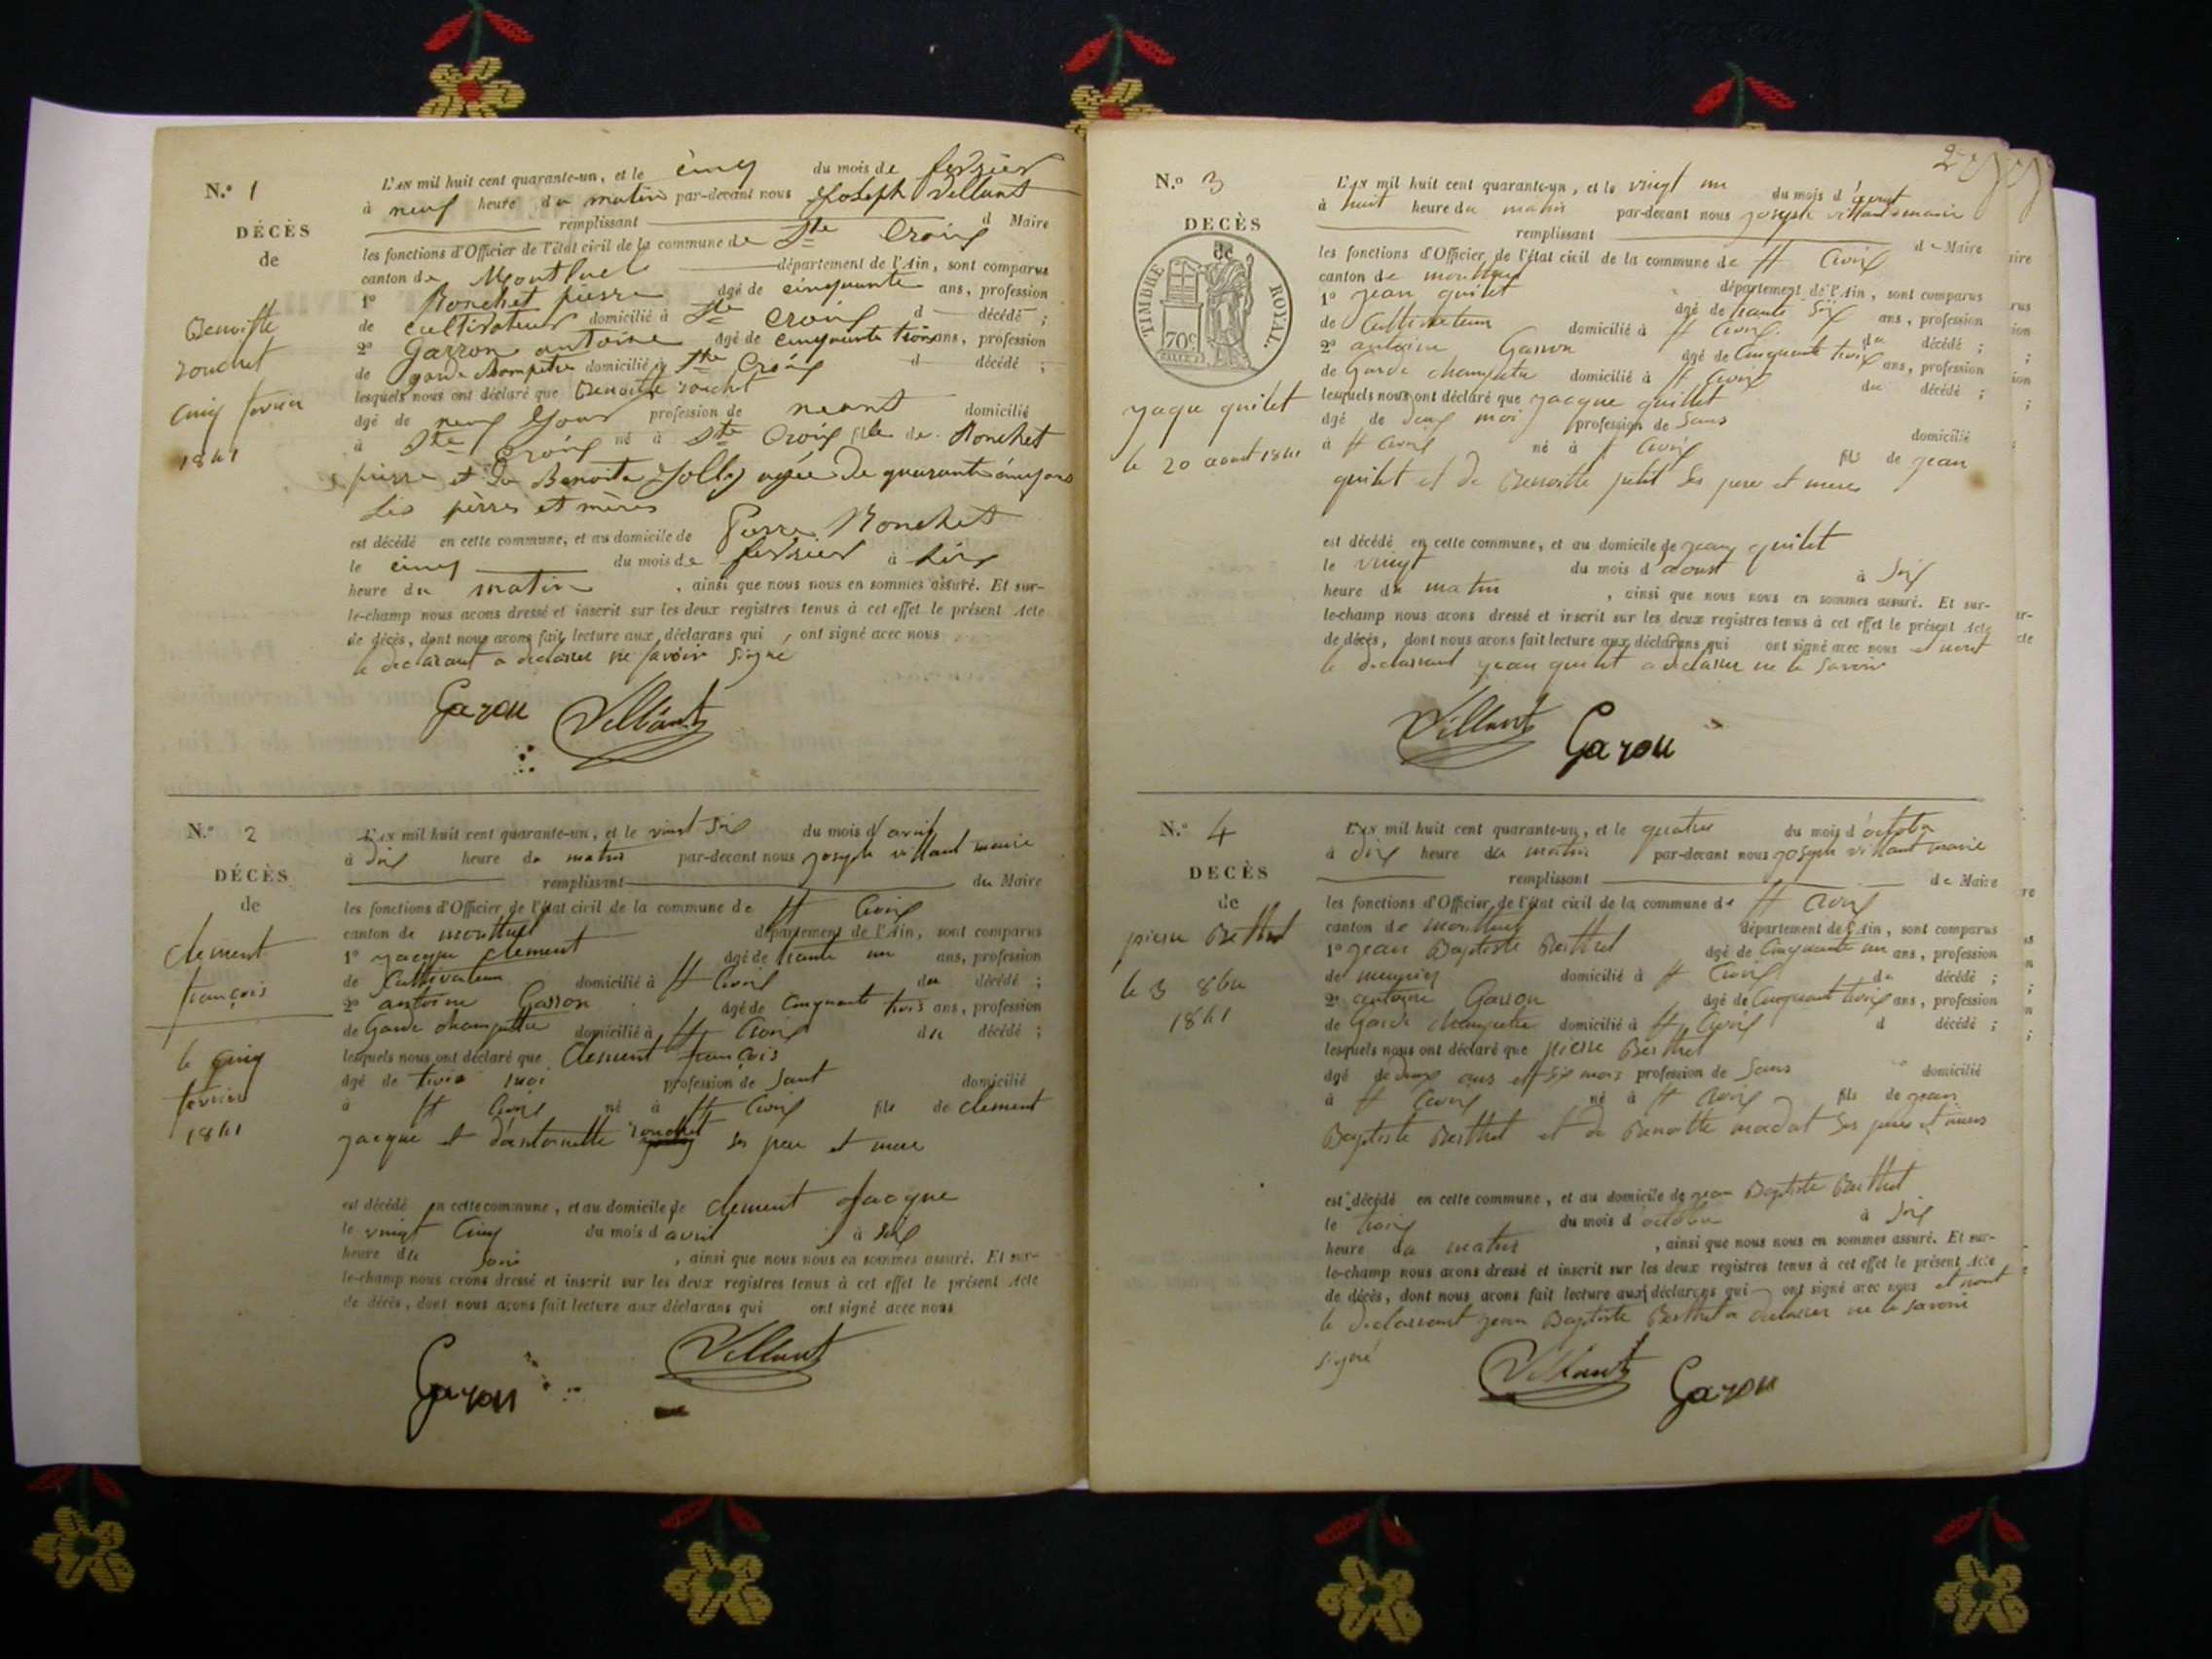 N.º 1
DÉCÈS
de
Benoitte
rouchet
cinq fevrier
1841
L'AN mil huit cent quarante-un, et le cinq du mois de fevrier
à neuf heure du matin par-devant nous Joseph Villant
remplissant d Maire
les fonctions d'Officier de l'état civil de la commune de Ste Croix
canton de Montluel département de l'Ain, sont comparus
1º Ronchet pierre âgé de cinquante ans, profession
de cultivateur domicilié à Ste Croix d décédé ;
2º Garron antoine âgé de cinquante trois ans, profession
de garde champetre domicilié à Ste Croix d décédé ;
lesquels nous ont déclaré que Benoitte rouchet
âgé de neuf Jour profession de neant domicilié
à Ste Croix né à Ste Croix fille de Ronchet
pierre et De Benoite Jolly agée de quarante cinq ans
Les pères et mères
est décédé en cette commune, et au domicile de Pierre Ronchet
le cinq du mois de fevrier à six
heure du matin , ainsi que nous nous en sommes assuré. Et sur-
le-champ nous avons dressé et inscrit sur les deux registres tenus à cet effet le présent Acte
de décès, dont nous avons fait lecture aux déclarans qui ont signé avec nous
le declarant a declarer ne savoir signé
Gazon Villant
N.º 2
DÉCÈS
de
clement
françois
le cinq
fevrier
1841
L'AN mil huit cent quarante-un, et le vingt six du mois d'avril
à dix heure du matin par-devant nous joseph villant maire
remplissant du Maire
les fonctions d'Officier de l'état civil de la commune de St Croix
canton de montluel département de l'Ain, sont comparus
1º jacque clement âgé de trante un ans, profession
de Cultivateur domicilié à St Croix du décédé ;
2º antoine Garron âgé de Cinquante trois ans, profession
de Garde champettre domicilié à St Croix du décédé ;
lesquels nous ont déclaré que Clement françois
âgé de trois moi profession de Sant domicilié
à St Croix né à St Croix fils de clement
jacque et d'antoinette rouchet ses pere et mere
est décédé en cette commune, et au domicile de clement Jacque
le vingt Cinq du mois d avril à six
heure du soir , ainsi que nous nous en sommes assuré. Et sur-
le-champ nous avons dressé et inscrit sur les deux registres tenus à cet effet le présent Acte
de décès, dont nous avons fait lecture aux déclarans qui ont signé avec nous
Gazon Villant
2
N.º 3
DECÈS
de
TIMBRE ROYAL.
70c
jaque guilet
le 20 aout 1841
L'AN mil huit cent quarante-un, et le vingt un du mois d'aout
à huit heure du matin par-devant nous joseph villant maire
remplissant de Maire
les fonctions d'Officier de l'état civil de la commune de St Croix
canton de montluel département de l'Ain, sont comparus
1º jean guilet âgé de trante six ans, profession
de Cultivateur domicilié à St Croix du décédé ;
2º antoine Garron âgé de Cinquante trois ans, profession
de Garde champetre domicilié à St Croix du décédé ;
lesquels nous ont déclaré que jacque guillet
âgé de deux moi profession de Sans domicilié
à St Croix né à St Croix fils de jean
guilet et de Benoitte petit ses pere et meres
est décédé en cette commune, et au domicile de jean guilet
le vingt du mois d'aoust à six
heure du matin , ainsi que nous nous en sommes assuré. Et sur-
le-champ nous avons dressé et inscrit sur les deux registres tenus à cet effet le présent Acte
de décès, dont nous avons fait lecture aux déclarans qui ont signé avec nous et nont
le declarant jean guilet a declarer ne le savoir
Villant Gazon
N.º 4
DECÈS
de
pierre Berthet
le 3 8bre
1841
L'AN mil huit cent quarante-un, et le quatre du mois d'octobre
à dix heure du matin par-devant nous joseph villant maire
remplissant de Maire
les fonctions d'Officier de l'état civil de la commune de St Croix
canton de montluel département de l'Ain, sont comparus
1º jean Baptiste Berthet âgé de Cinquante un ans, profession
de meunier domicilié à St Croix du décédé ;
2º antoine Garron âgé de Cinquant trois ans, profession
de Garde champetre domicilié à St Croix d décédé ;
lesquels nous ont déclaré que pierre Berthet
âgé de deux ans et six mois profession de Sans domicilié
à St Croix né à St Croix fils de jean
Baptiste Berthet et de Benoitte madat ses pere et meres
est décédé en cette commune, et au domicile de jean Baptiste Berthet
le trois du mois d'octobre à six
heure du matin , ainsi que nous nous en sommes assuré. Et sur-
le-champ nous avons dressé et inscrit sur les deux registres tenus à cet effet le présent Acte
de décès, dont nous avons fait lecture aux déclarans qui ont signé avec nous et nont
le declarant jean Baptiste Berthet a declarer ne le savoir
signé
Villant Gazon